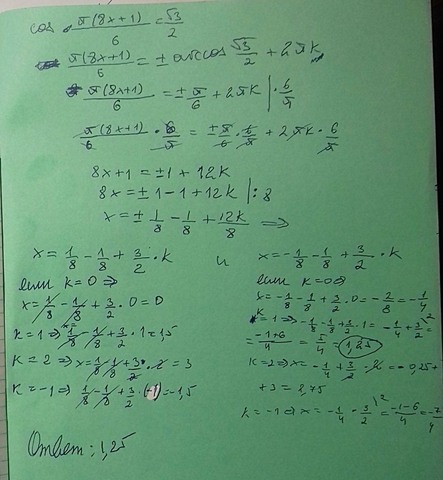 cos π(8x+1)/6 = √3/2
π(8x+1)/6 = ± arccos √3/2 + 2πk
π(8x+1)/6 = ± π/6 + 2πk | · 6/π
π(8x+1)/6 · 6/π = ± π/6 · 6/π + 2πk · 6/π
8x+1 = ±1 + 12k
8x = ±1 − 1 + 12k | : 8
x = ± 1/8 − 1/8 + 12k/8 ⇒
x = 1/8 − 1/8 + 3/2 · k и x = − 1/8 − 1/8 + 3/2 · k
если k = 0 ⇒
x = 1/8 − 1/8 + 3/2 · 0 = 0
k = 1 ⇒ x = 1/8 − 1/8 + 3/2 · 1 = 1,5
k = 2 ⇒ x = 1/8 − 1/8 + 3/2 · 2 = 3
k = −1 ⇒ 1/8 − 1/8 + 3/2 · (−1) = −1,5
если k = 0 ⇒
x = − 1/8 − 1/8 + 3/2 · 0 = − 2/8 = − 1/4
k = 1 ⇒ − 1/8 − 1/8 + 3/2 · 1 = − 1/4 + 3/2 =
= −1+6/4 = 5/4 = 1,25
k = 2 ⇒ x = − 1/4 + 3/2 · 2 = −0,25 +
+ 3 = 2,75
k = −1 ⇒ x = − 1/4 − 3/2 = −1−6/4 = −7/4
Ответ: 1,25